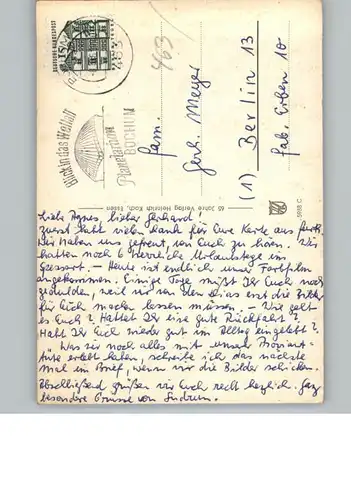 DEUTSCHE BUNDESPOST
15
463/
Blick in das Weltall
Planetarium
BOCHUM
Fam.
Gerh. Meyer
(1) Berlin 13
65 Jahre Verlag Heinrich Koch, Essen
5938 C
Liebe Agnes, lieber Gerhard!
Zuerst habt vielen Dank für Eure Karte aus
Wir haben uns gefreut, von Euch zu hören. Wir
hatten noch 6 herrliche Urlaubstage im
Spessart. – Heute ist endlich unser Farbfilm
angekommen. Einige Tage müßt Ihr Euch noch
gedulden, weil wir von den Dias erst die Bilder
für Euch machen lassen müssen. – Wie geht
es Euch? Hattet Ihr eine gute Rückfahrt?
Habt Ihr Euch wieder gut im Alltag eingelebt?
Was wir noch alles mit unserer Proviant-
tüte erlebt haben, schreibe ich das nächste
Mal im Brief, wenn wir die Bilder schicken.
Abschließend grüßen wir Euch recht herzlich. Ganz
besondere Grüsse von